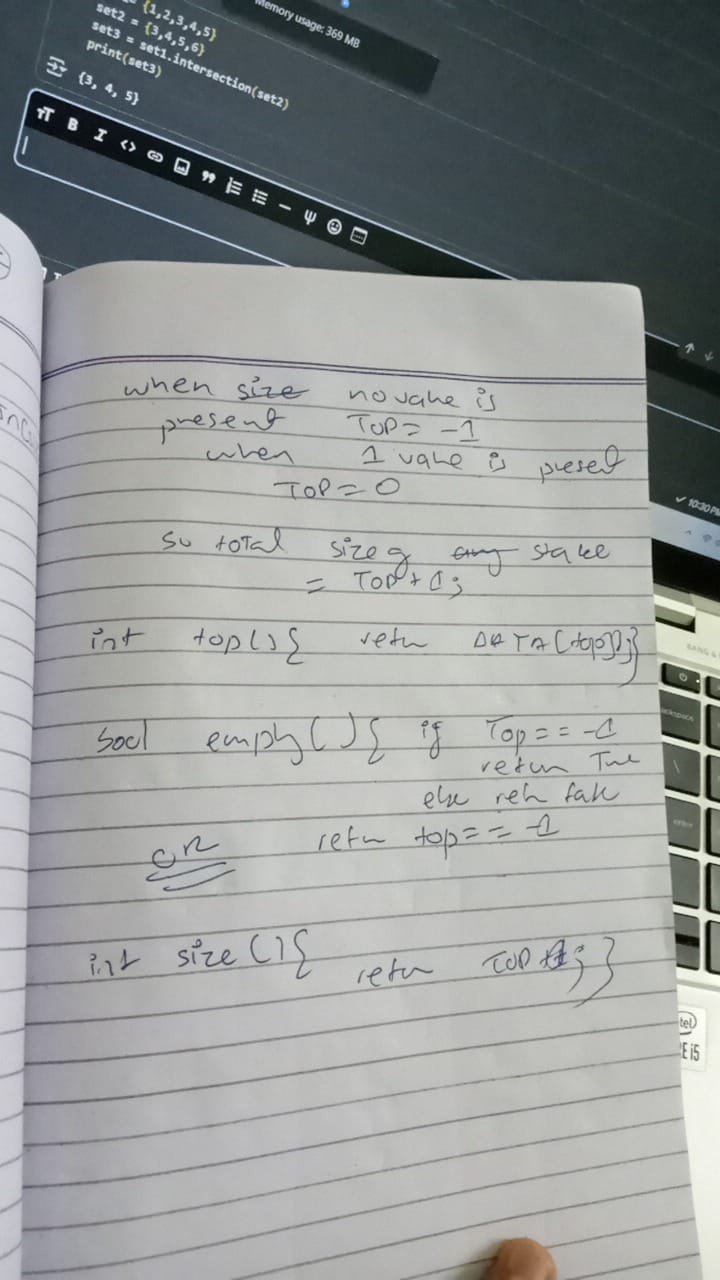 = {1,2,3,4,5}
set2 = {3,4,5,6}
set3 = set1.intersection(set2)
print(set3)
{3, 4, 5}
Memory usage: 369 MB
10:30 PM
when size no value is
present TOP = -1
when 1 value is present
TOP = 0
so total size of any stake
= TOP + 1;
int top() { retn DATA[top]; }
bool empty() { if Top == -1
return True
else retn false
OR retn top == -1
int size() { retn TOP +1; }
BANG &
backspace
enter
intel
E i5